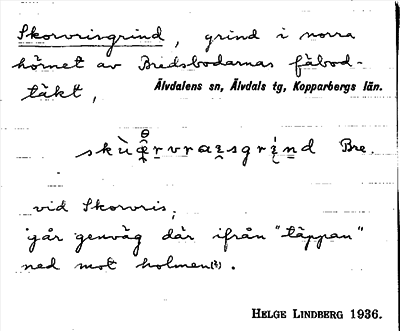 Skorvrisgrind, grind i norra
hörnet av Bredsbodarnas fäbod-
täkt, Älvdalens sn, Älvdals tg, Kopparbergs län.
Bre.
vid Skorvris;
går genväg där ifrån "täppan"
ned mot holmen(?).
HELGE LINDBERG 1936.